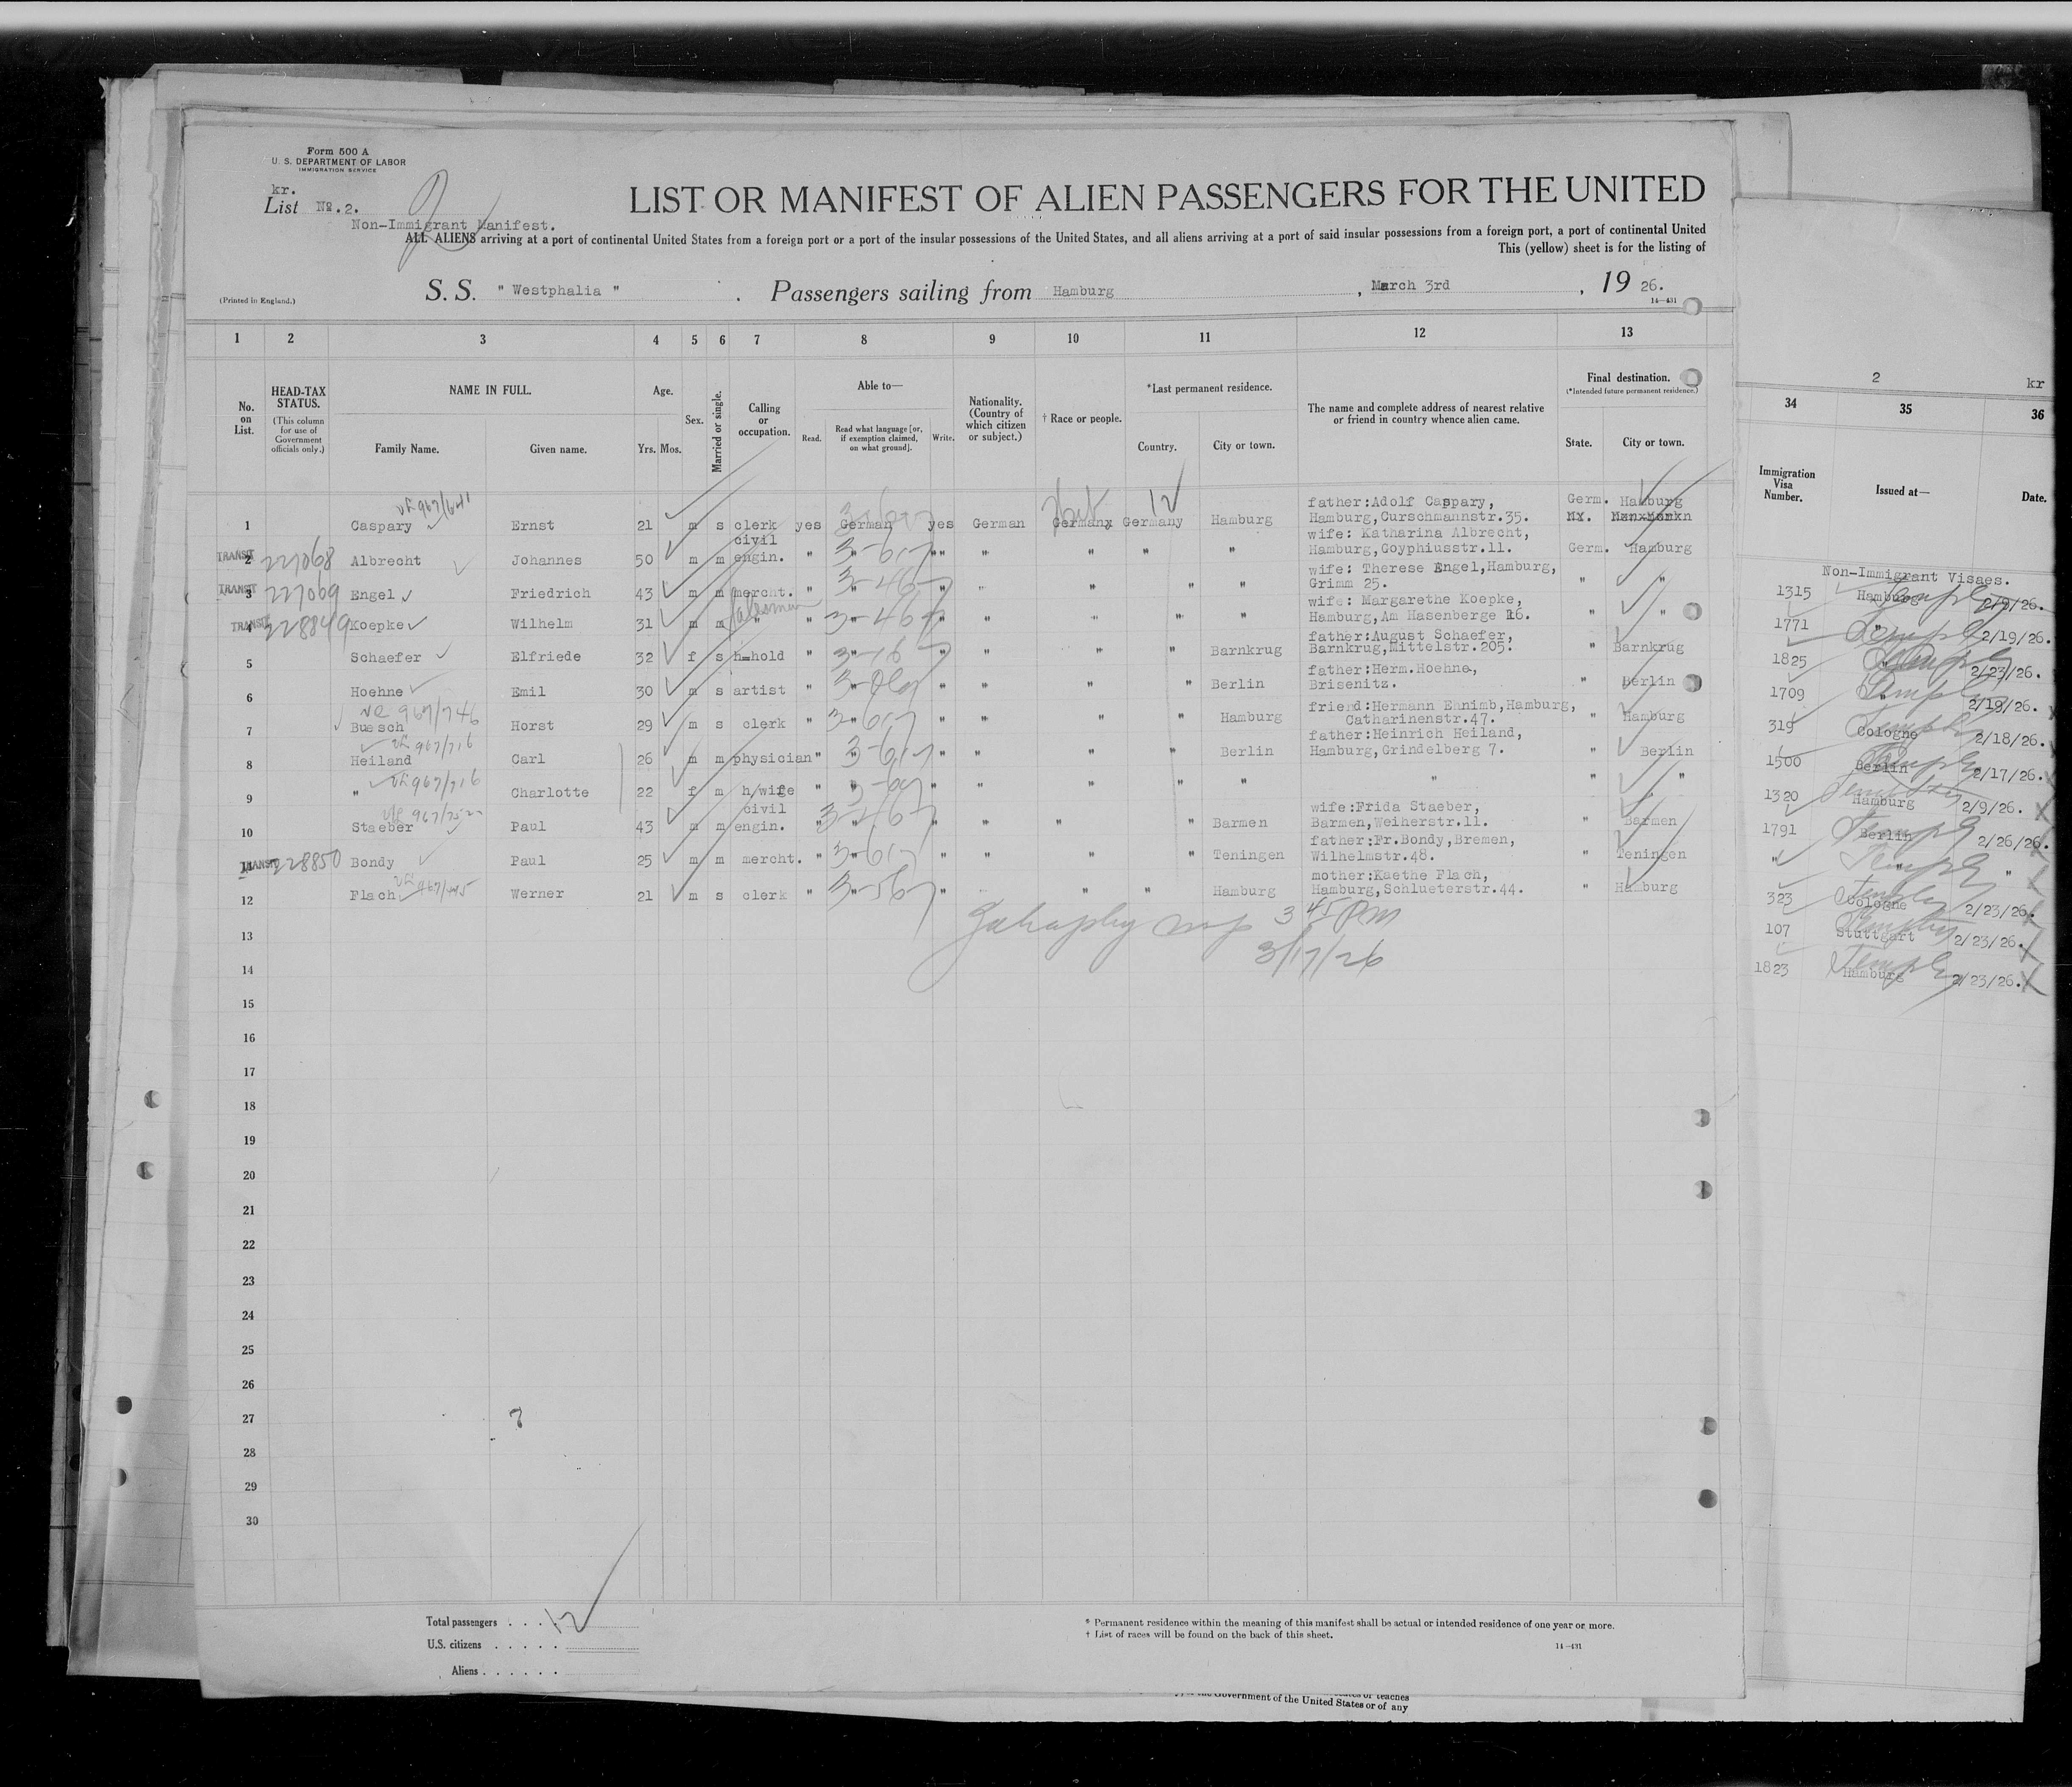 Form 500 A
U. S. DEPARTMENT OF LABOR
IMMIGRATION SERVICE
kr.
List No. 2.
Non-Immigrant Manifest.
LIST OR MANIFEST OF ALIEN PASSENGERS FOR THE UNITED
ALL ALIENS arriving at a port of continental United States from a foreign port or a port of the insular possessions of the United States, and all aliens arriving at a port of said insular possessions from a foreign port, a port of continental United
This (yellow) sheet is for the listing of
(Printed in England.)
S. S. " Westphalia " . Passengers sailing from Hamburg , March 3rd , 19 26.
14—431
1 2 3 4 5 6 7 8 9 10 11 12 13
No. on List.
HEAD-TAX STATUS.
(This column for use of Government officials only.)
NAME IN FULL.
Family Name. Given name.
Age.
Yrs. Mos.
Sex.
Married or single.
Calling or occupation.
Able to—
Read. Read what language [or, if exemption claimed, on what ground]. Write.
Nationality. (Country of which citizen or subject.)
† Race or people.
*Last permanent residence.
Country. City or town.
The name and complete address of nearest relative or friend in country whence alien came.
Final destination.
(*Intended future permanent residence.)
State. City or town.
967/641
12
1 Caspary Ernst 21 m s clerk yes German yes German German Germany Hamburg father:Adolf Caspary, Hamburg,Curschmannstr.35. Germ. Hamburg
TRANSIT 2 227068 Albrecht Johannes 50 m m civil engin. " " " " " " " wife: Katharina Albrecht, Hamburg,Goyphiusstr.11. Germ. Hamburg
TRANSIT 3 227069 Engel Friedrich 43 m m mercht. " " " " " " " wife: Therese Engel,Hamburg, Grimm 25. " "
TRANSIT 4 228849 Koepke Wilhelm 31 m m " Salesman " " " " " " " wife: Margarethe Koepke, Hamburg,Am Hasenberge 16. " "
5 Schaefer Elfriede 32 f s h-hold " " " " " " Barnkrug father:August Schaefer, Barnkrug,Mittelstr.205. " Barnkrug
6 Hoehne Emil 30 m s artist " " " " " " Berlin father:Herm.Hoehne, Brisenitz. " Berlin
967/746
7 Buesch Horst 29 m s clerk " " " " " " Hamburg friend:Hermann Ehnimb,Hamburg, Catharinenstr.47. " Hamburg
967/716
8 Heiland Carl 26 m m physician " " " " " " Berlin father:Heinrich Heiland, Hamburg,Grindelberg 7. " Berlin
967/716
9 " Charlotte 22 f m h/wife " " " " " " " " " "
10 Staeber Paul 43 m m civil engin. " " " " " " Barmen wife:Frida Staeber, Barmen,Weiherstr.11. " Barmen
TRANSIT 228850 Bondy Paul 25 m m mercht. " " " " " " Teningen father:Fr.Bondy,Bremen, Wilhelmstr.48. " Teningen
12 Flach Werner 21 m s clerk " " " " " " Hamburg mother:Kaethe Flach, Hamburg,Schlueterstr.44. " Hamburg
13
3 45 PM
14
3/17/26
15
16
17
18
19
20
21
22
23
24
25
26
27
28
29
30
Total passengers . . . . 12
U.S. citizens . . . . .
Aliens . . . . . .
* Permanent residence within the meaning of this manifest shall be actual or intended residence of one year or more.
† List of races will be found on the back of this sheet.
14—431
the Government of the United States or of any
2 kr
34 35 36
Immigration Visa Number. Issued at— Date.
Non-Immigrant Visaes.
1315 Hamburg 2/9/26.
1771 " 2/19/26.
1825 " 2/23/26.
1709 " 2/19/26.
319 Cologne 2/18/26.
1500 Berlin 2/17/26.
1320 Hamburg 2/9/26.
1791 Berlin 2/26/26.
" " "
323 Cologne 2/23/26.
107 Stuttgart 2/23/26.
1823 Hamburg 2/23/26.